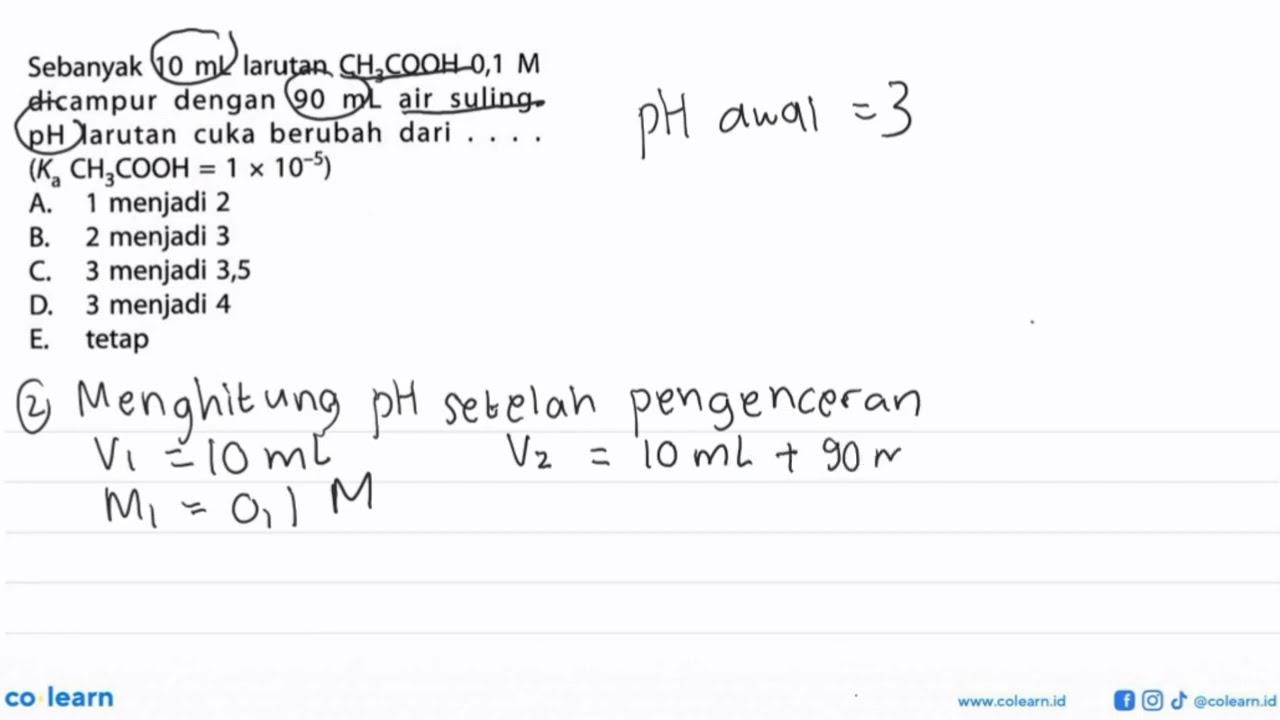 Sebanyak 10 mL larutan CH₃COOH 0,1 M
dicampur dengan 90 mL air suling.
pH larutan cuka berubah dari . . . .
(Kₐ CH₃COOH = 1 × 10⁻⁵)
A. 1 menjadi 2
B. 2 menjadi 3
C. 3 menjadi 3,5
D. 3 menjadi 4
E. tetap
pH awal = 3
② Menghitung pH setelah pengenceran
V₁ = 10 mL V₂ = 10 mL + 90 m
M₁ = 0,1 M
co learn
www.colearn.id @colearn.id